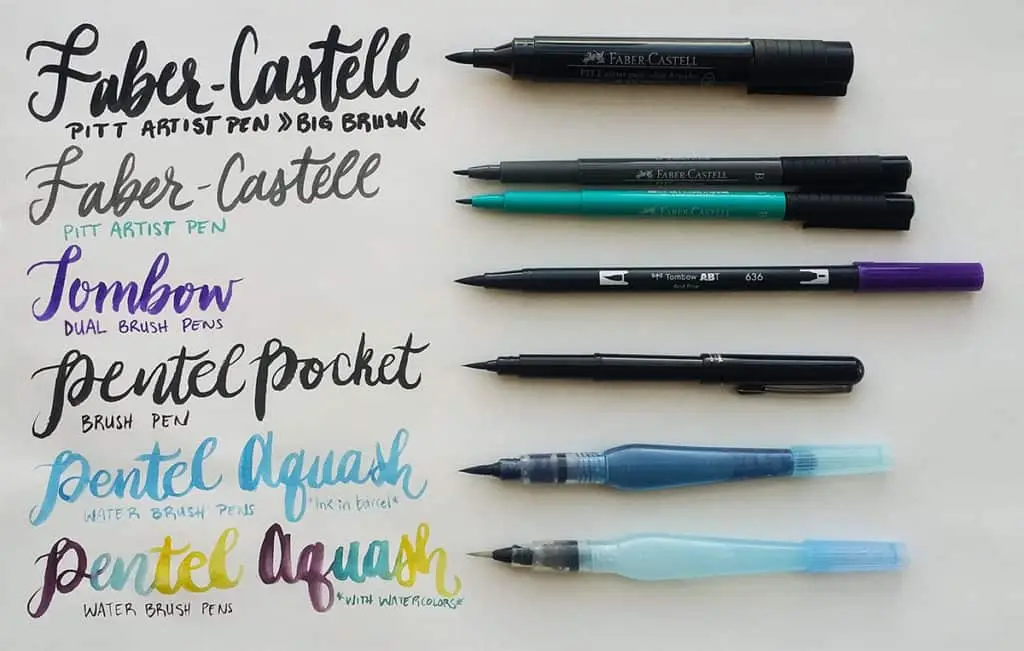 Faber-Castell
PITT ARTIST PEN »BIG BRUSH«
FABER-CASTELL
PITT artist pen
Faber-Castell
PITT ARTIST PEN
FABER-CASTELL B
FABER-CASTELL B
Tombow
DUAL BRUSH PENS
Tombow ABT 636
Pentel Pocket
BRUSH PEN
Pentel Aquash
WATER BRUSH PENS *Ink in barrel*
Pentel Aquash
WATER BRUSH PENS *WITH WATERCOLORS*